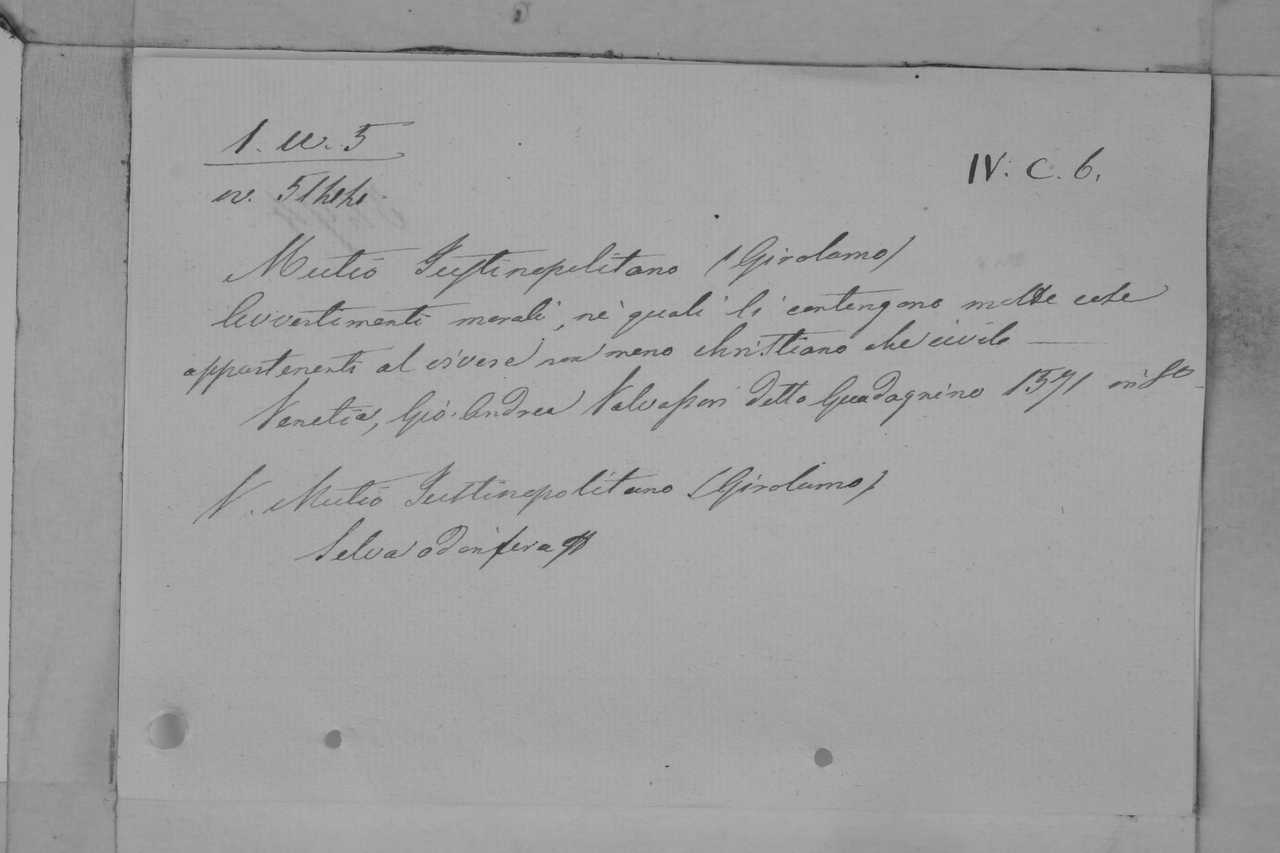 1. w. 5
IV. C. 6.
Mutio Justinopolitano (Girolamo)
Avvertimenti morali, nè quali si contengono molte cose
appartenenti al vivere non meno christiano che civile
Venetia, Gio. Andrea Valvassori detto Guadagnino 1571 in 8o
V. Mutio Justinopolitano (Girolamo)
Selva odorifera